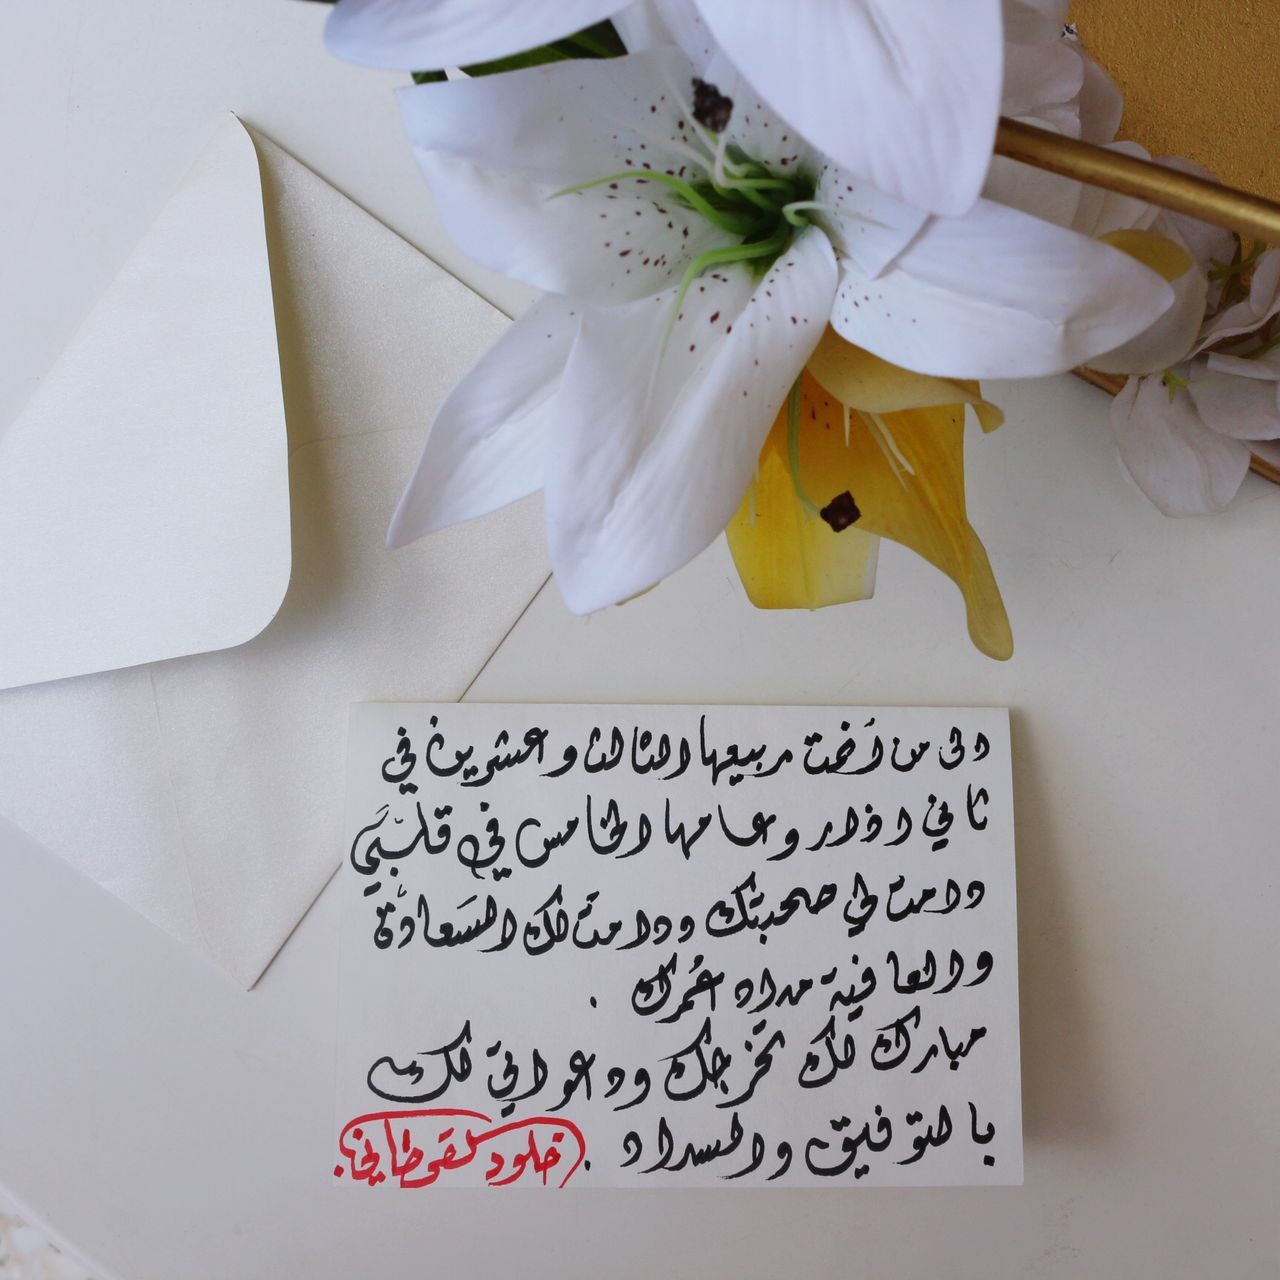 الى من أتمت ربيعها الثالث وعشرين في
ثاني اذار وعامها الخامس في قلبي
دامت لي صحبتك ودامت لك السَعادة
والعافية مداد عُمرك .
مبارك لك تخرجك ودعواتي لك
بالتوفيق والسداد . (خلود القحطاني).